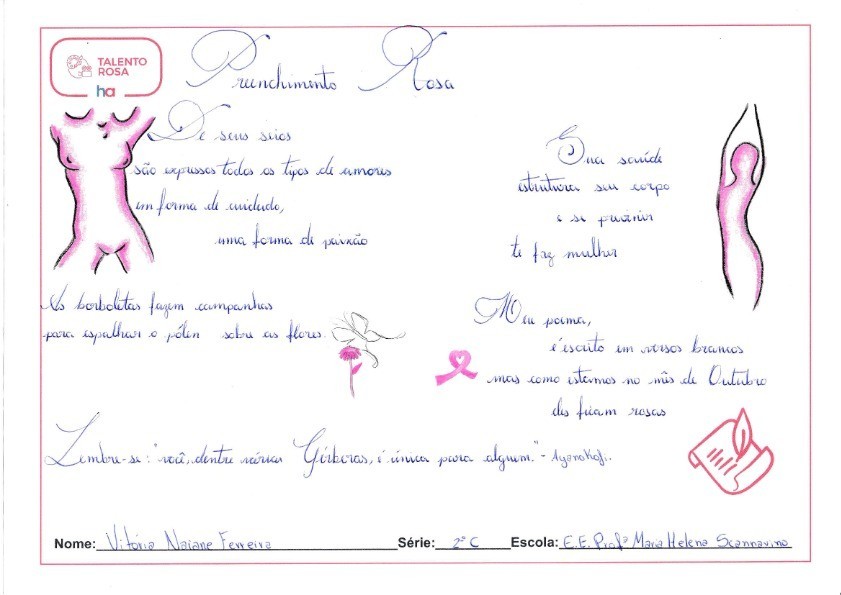 TALENTO
ROSA
ha
Preenchimento Rosa
De seus seios
são expressos todos os tipos de amores
em forma de cuidado,
uma forma de paixão
Sua saúde
estrutura seu corpo
e se prevenir
te faz mulher
As borboletas fazem campanhas
para espalhar o pólen sobre as flores.
Meu poema,
é escrito em versos brancos
mas como estamos no mês de Outubro
eles ficam rosas
Lembre-se: "você, dentre várias Gérberas, é única para alguém." - Ayano Kofi.
Nome: Vitória Naiane Ferreira Série: 2º C Escola: E.E. Profª Mara Helena Scannavino